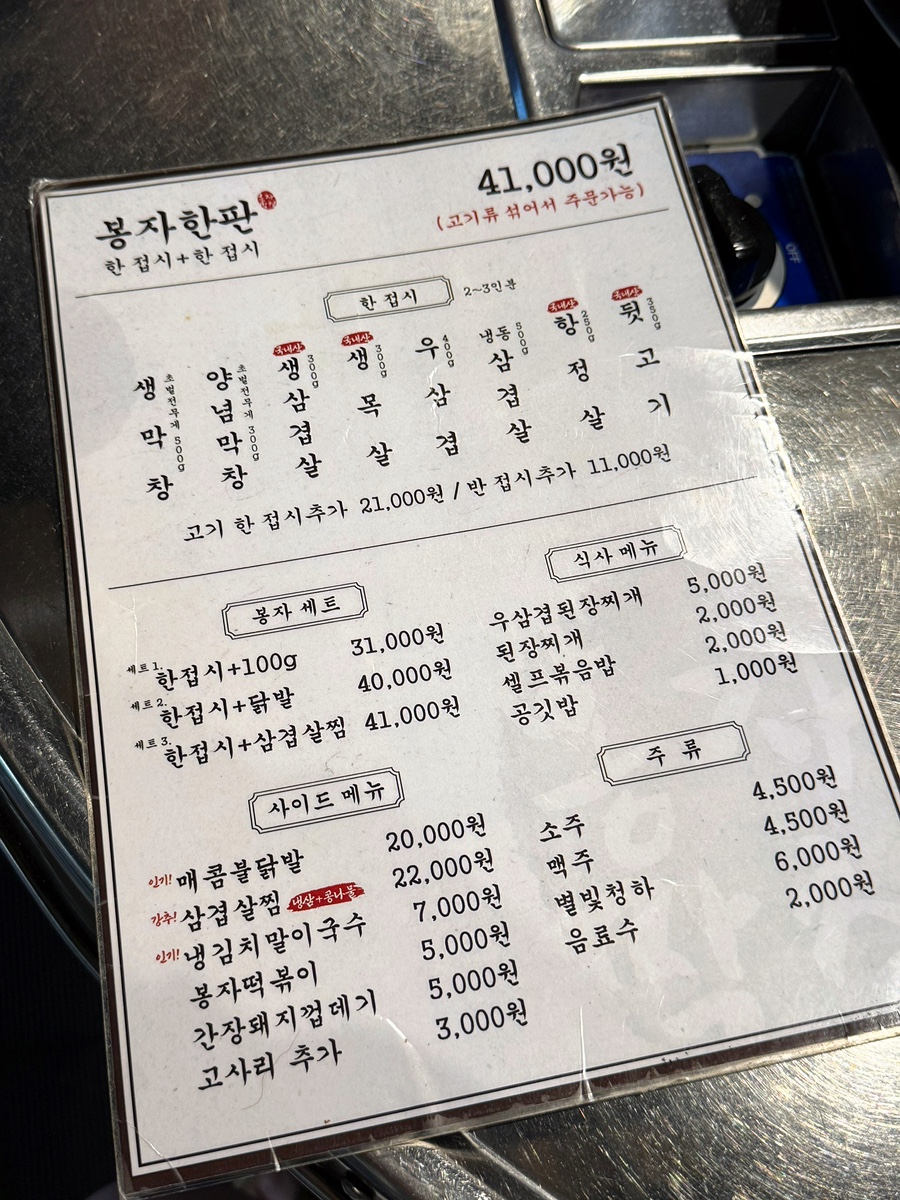 봉자한판
한 접시+한 접시
41,000원
(고기류 섞어서 주문가능)
한 접시 2~3인분
생막창 초벌전무게 500g
양념막창 초벌전무게 300g
국내산 생삼겹살 300g
국내산 생목살 300g
우삼겹 400g
냉동삼겹살 500g
국내산 항정살 250g
국내산 뒷고기 350g
고기 한 접시추가 21,000원 / 반 접시추가 11,000원
봉자 세트
세트1. 한접시+100g 31,000원
세트2. 한접시+닭발 40,000원
세트3. 한접시+삼겹살찜 41,000원
사이드 메뉴
인기! 매콤불닭발 20,000원
강추! 삼겹살찜 냉삼+콩나물 22,000원
인기! 냉김치말이국수 7,000원
봉자떡볶이 5,000원
간장돼지껍데기 5,000원
고사리 추가 3,000원
식사 메뉴
우삼겹된장찌개 5,000원
된장찌개 2,000원
셀프볶음밥 2,000원
공깃밥 1,000원
주 류
소주 4,500원
맥주 4,500원
별빛청하 6,000원
음료수 2,000원
OFF